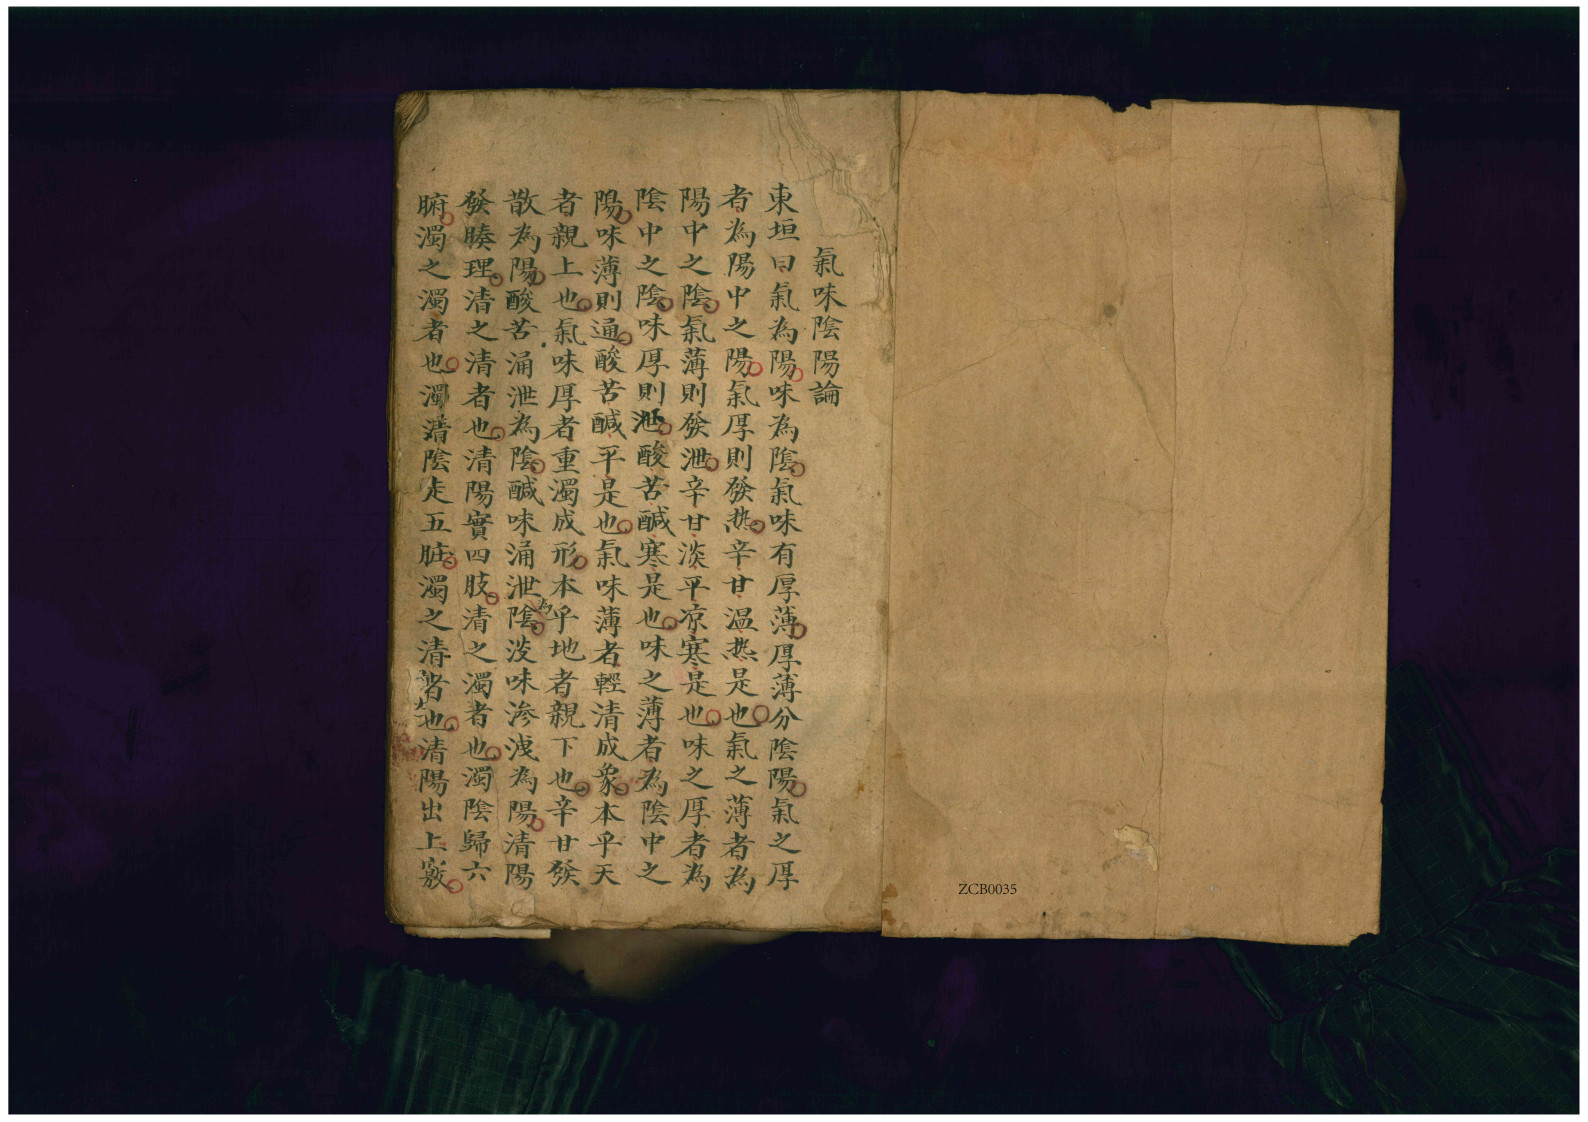 氣味陰陽論
東垣曰氣為陽味為陰氣味有厚薄厚薄分陰陽氣之厚
者為陽中之陽氣厚則發热辛甘温热是也氣之薄者為
陽中之陰氣薄則發泄辛甘淡平凉寒是也味之厚者為
陰中之陰味厚則泄酸苦醎寒是也味之薄者為陰中之
陽味薄則通酸苦醎平是也氣味薄者輕清成象本乎天
者親上也氣味厚者重濁成形本乎地者親下也辛甘發
散為陽酸苦涌泄為陰醎味涌泄為陰淡味渗洩為陽清陽
發腠理清之清者也清陽實四肢清之濁者也濁陰歸六
腑濁之濁者也濁清陰走五脏濁之清者也清陽出上竅
ZCB0035